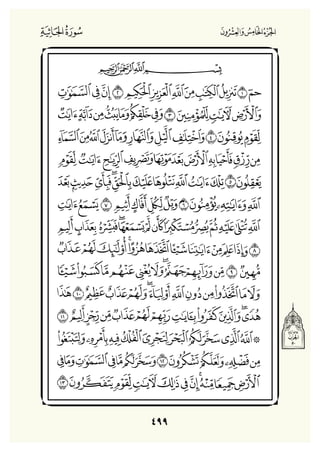 الجزء الخامس والعشرون
سورة الجاثية
بسم الله الرحمن الرحيم
حمٓ ١ تَنزِيلُ ٱلْكِتَٰبِ مِنَ ٱللَّهِ ٱلْعَزِيزِ ٱلْحَكِيمِ ٢ إِنَّ فِى ٱلسَّمَٰوَٰتِ
وَٱلْأَرْضِ لَءَايَٰتٍ لِّلْمُؤْمِنِينَ ٣ وَفِى خَلْقِكُمْ وَمَا يَبُثُّ مِن دَآبَّةٍ ءَايَٰتٌ
لِّقَوْمٍ يُوقِنُونَ ٤ وَٱخْتِلَٰفِ ٱلَّيْلِ وَٱلنَّهَارِ وَمَآ أَنزَلَ ٱللَّهُ مِنَ ٱلسَّمَآءِ
مِن رِّزْقٍ فَأَحْيَا بِهِ ٱلْأَرْضَ بَعْدَ مَوْتِهَا وَتَصْرِيفِ ٱلرِّيَٰحِ ءَايَٰتٌ لِّقَوْمٍ
يَعْقِلُونَ ٥ تِلْكَ ءَايَٰتُ ٱللَّهِ نَتْلُوهَا عَلَيْكَ بِٱلْحَقِّ ۖ فَبِأَىِّ حَدِيثٍۭ بَعْدَ
ٱللَّهِ وَءَايَٰتِهِۦ يُؤْمِنُونَ ٦ وَيْلٌ لِّكُلِّ أَفَّاكٍ أَثِيمٍ ٧ يَسْمَعُ ءَايَٰتِ
ٱللَّهِ تُتْلَىٰ عَلَيْهِ ثُمَّ يُصِرُّ مُسْتَكْبِرًا كَأَن لَّمْ يَسْمَعْهَا ۖ فَبَشِّرْهُ بِعَذَابٍ أَلِيمٍ
٨ وَإِذَا عَلِمَ مِنْ ءَايَٰتِنَا شَيْـًٔا ٱتَّخَذَهَا هُزُوًا ۚ أُو۟لَٰٓئِكَ لَهُمْ عَذَابٌ
مُّهِينٌ ٩ مِّن وَرَآئِهِمْ جَهَنَّمُ ۖ وَلَا يُغْنِى عَنْهُم مَّا كَسَبُوا۟ شَيْـًٔا
وَلَا مَا ٱتَّخَذُوا۟ مِن دُونِ ٱللَّهِ أَوْلِيَآءَ ۖ وَلَهُمْ عَذَابٌ عَظِيمٌ ١٠ هَٰذَا
هُدًى ۖ وَٱلَّذِينَ كَفَرُوا۟ بِـَٔايَٰتِ رَبِّهِمْ لَهُمْ عَذَابٌ مِّن رِّجْزٍ أَلِيمٌ ١١
۞ ٱللَّهُ ٱلَّذِى سَخَّرَ لَكُمُ ٱلْبَحْرَ لِتَجْرِىَ ٱلْفُلْكُ فِيهِ بِأَمْرِهِۦ وَلِتَبْتَغُوا۟
مِن فَضْلِهِۦ وَلَعَلَّكُمْ تَشْكُرُونَ ١٢ وَسَخَّرَ لَكُم مَّا فِى ٱلسَّمَٰوَٰتِ وَمَا فِى
ٱلْأَرْضِ جَمِيعًا مِّنْهُ ۚ إِنَّ فِى ذَٰلِكَ لَءَايَٰتٍ لِّقَوْمٍ يَتَفَكَّرُونَ ١٣
٤٩٩